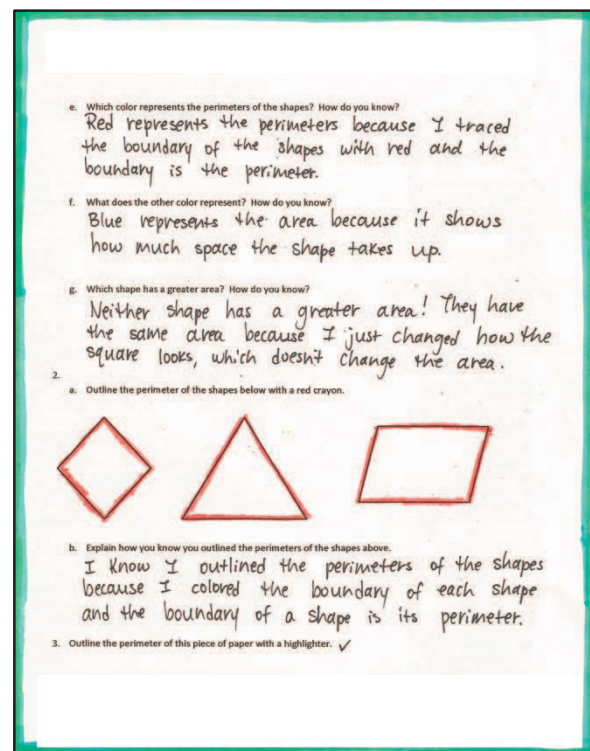 e. Which color represents the perimeters of the shapes? How do you know?
Red represents the perimeters because I traced
the boundary of the shapes with red and the
boundary is the perimeter.
f. What does the other color represent? How do you know?
Blue represents the area because it shows
how much space the shape takes up.
g. Which shape has a greater area? How do you know?
Neither shape has a greater area! They have
the same area because I just changed how the
square looks, which doesn't change the area.
2.
a. Outline the perimeter of the shapes below with a red crayon.
b. Explain how you know you outlined the perimeters of the shapes above.
I know I outlined the perimeters of the shapes
because I colored the boundary of each shape
and the boundary of a shape is its perimeter.
3. Outline the perimeter of this piece of paper with a highlighter. ✓